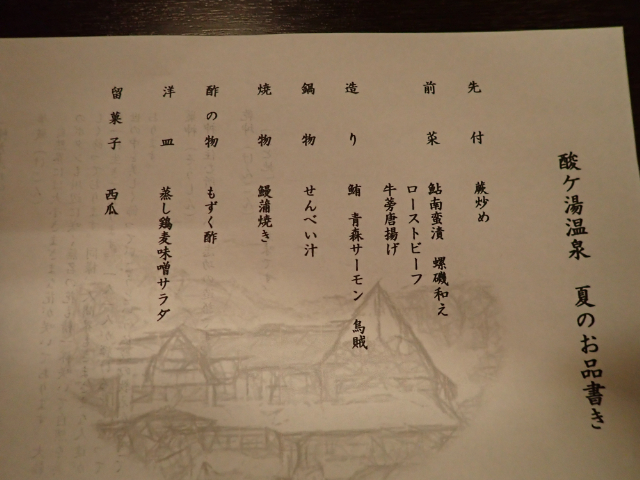 酸ケ湯温泉 夏のお品書き
先付 蕨炒め
前菜 鮎南蛮漬 螺磯和え
ローストビーフ
牛蒡唐揚げ
造り 鮪 青森サーモン 烏賊
鍋物 せんべい汁
焼物 鰻蒲焼き
酢の物 もずく酢
洋皿 蒸し鶏麦味噌サラダ
留菓子 西瓜